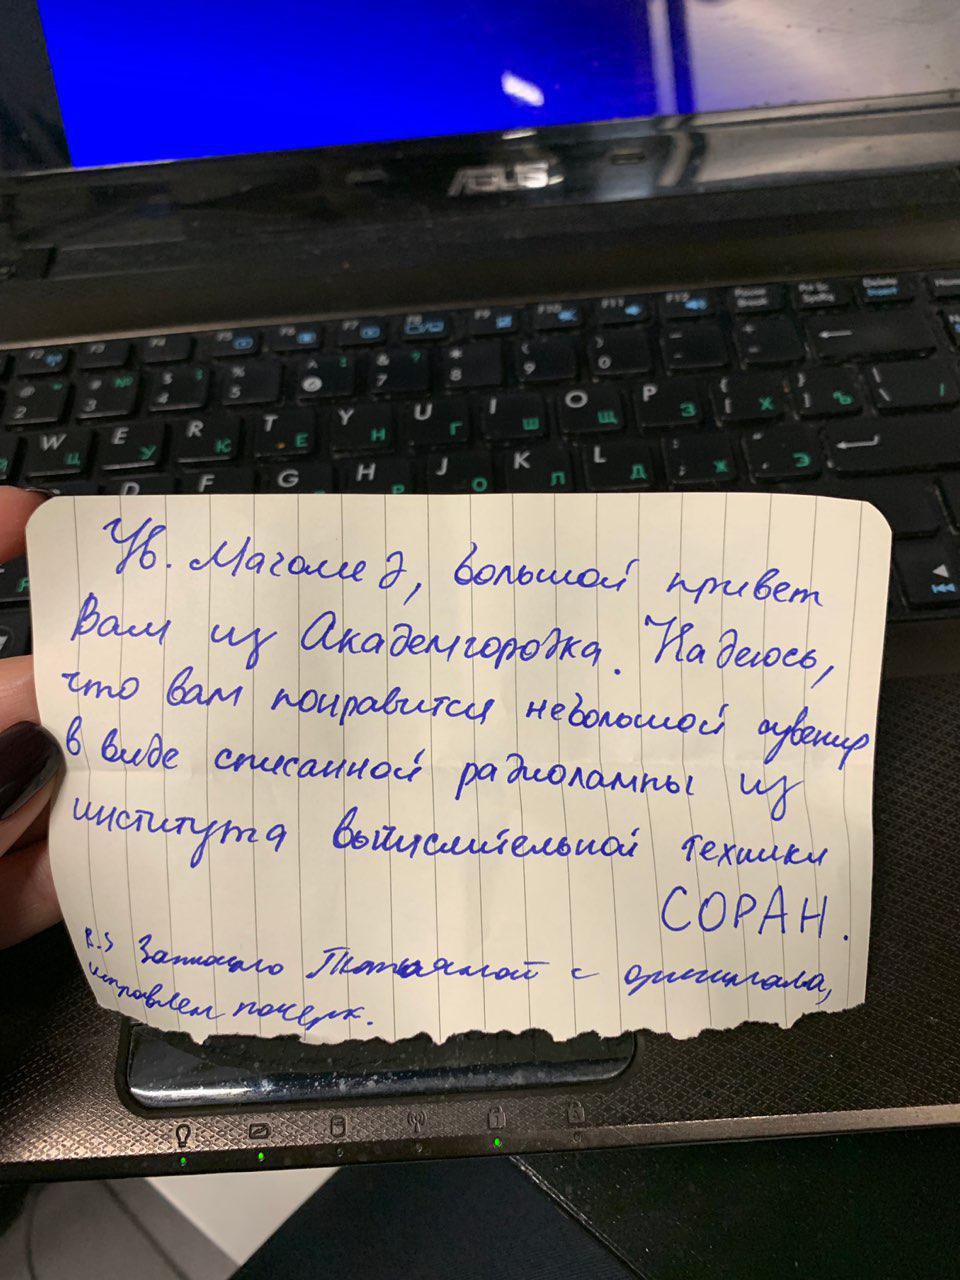 ASUS
Ув. Магомед, большой привет
Вам из Академгородка. Надеюсь,
что вам понравится небольшой сувенир
в виде списанной радиолампы из
института вычислительной техники
СОРАН.
P.S Записано Татьяной с оригинала,
исправлен почерк.